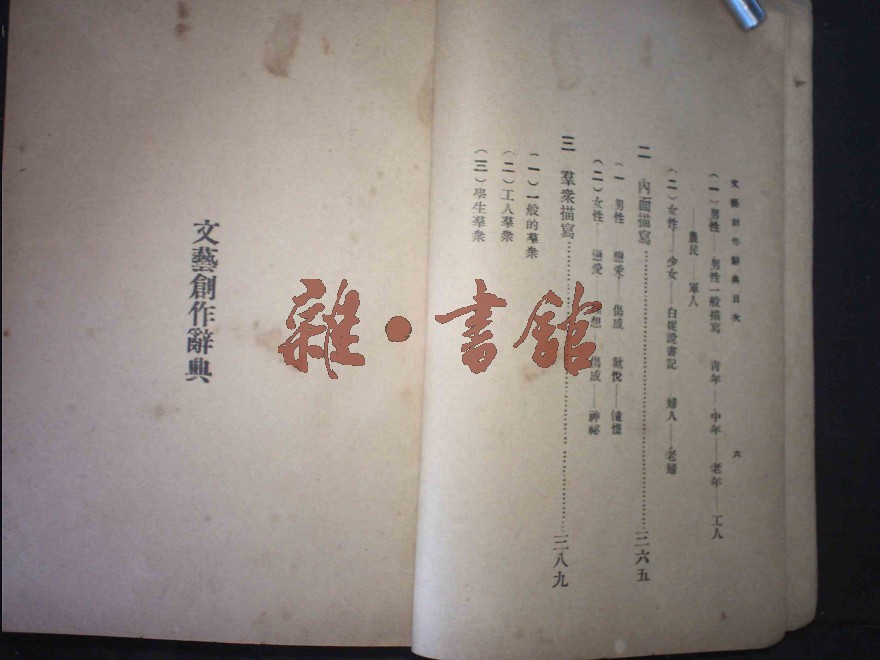 文藝創作辭典目次
六
(一)男性——男性一般描寫 靑年——中年——老年——工人
——農民——軍人
(二)女性——少女——白妮說書記 婦人——老婦
二 內面描寫……三六五
(一 男性 戀愛 傷感 憧憬
(二)女性——戀愛 想 傷感——神祕
三 羣衆描寫……三八九
(一)一般的羣衆
(二)工人羣衆
(三)學生羣衆
文藝創作辭典
雜·書館